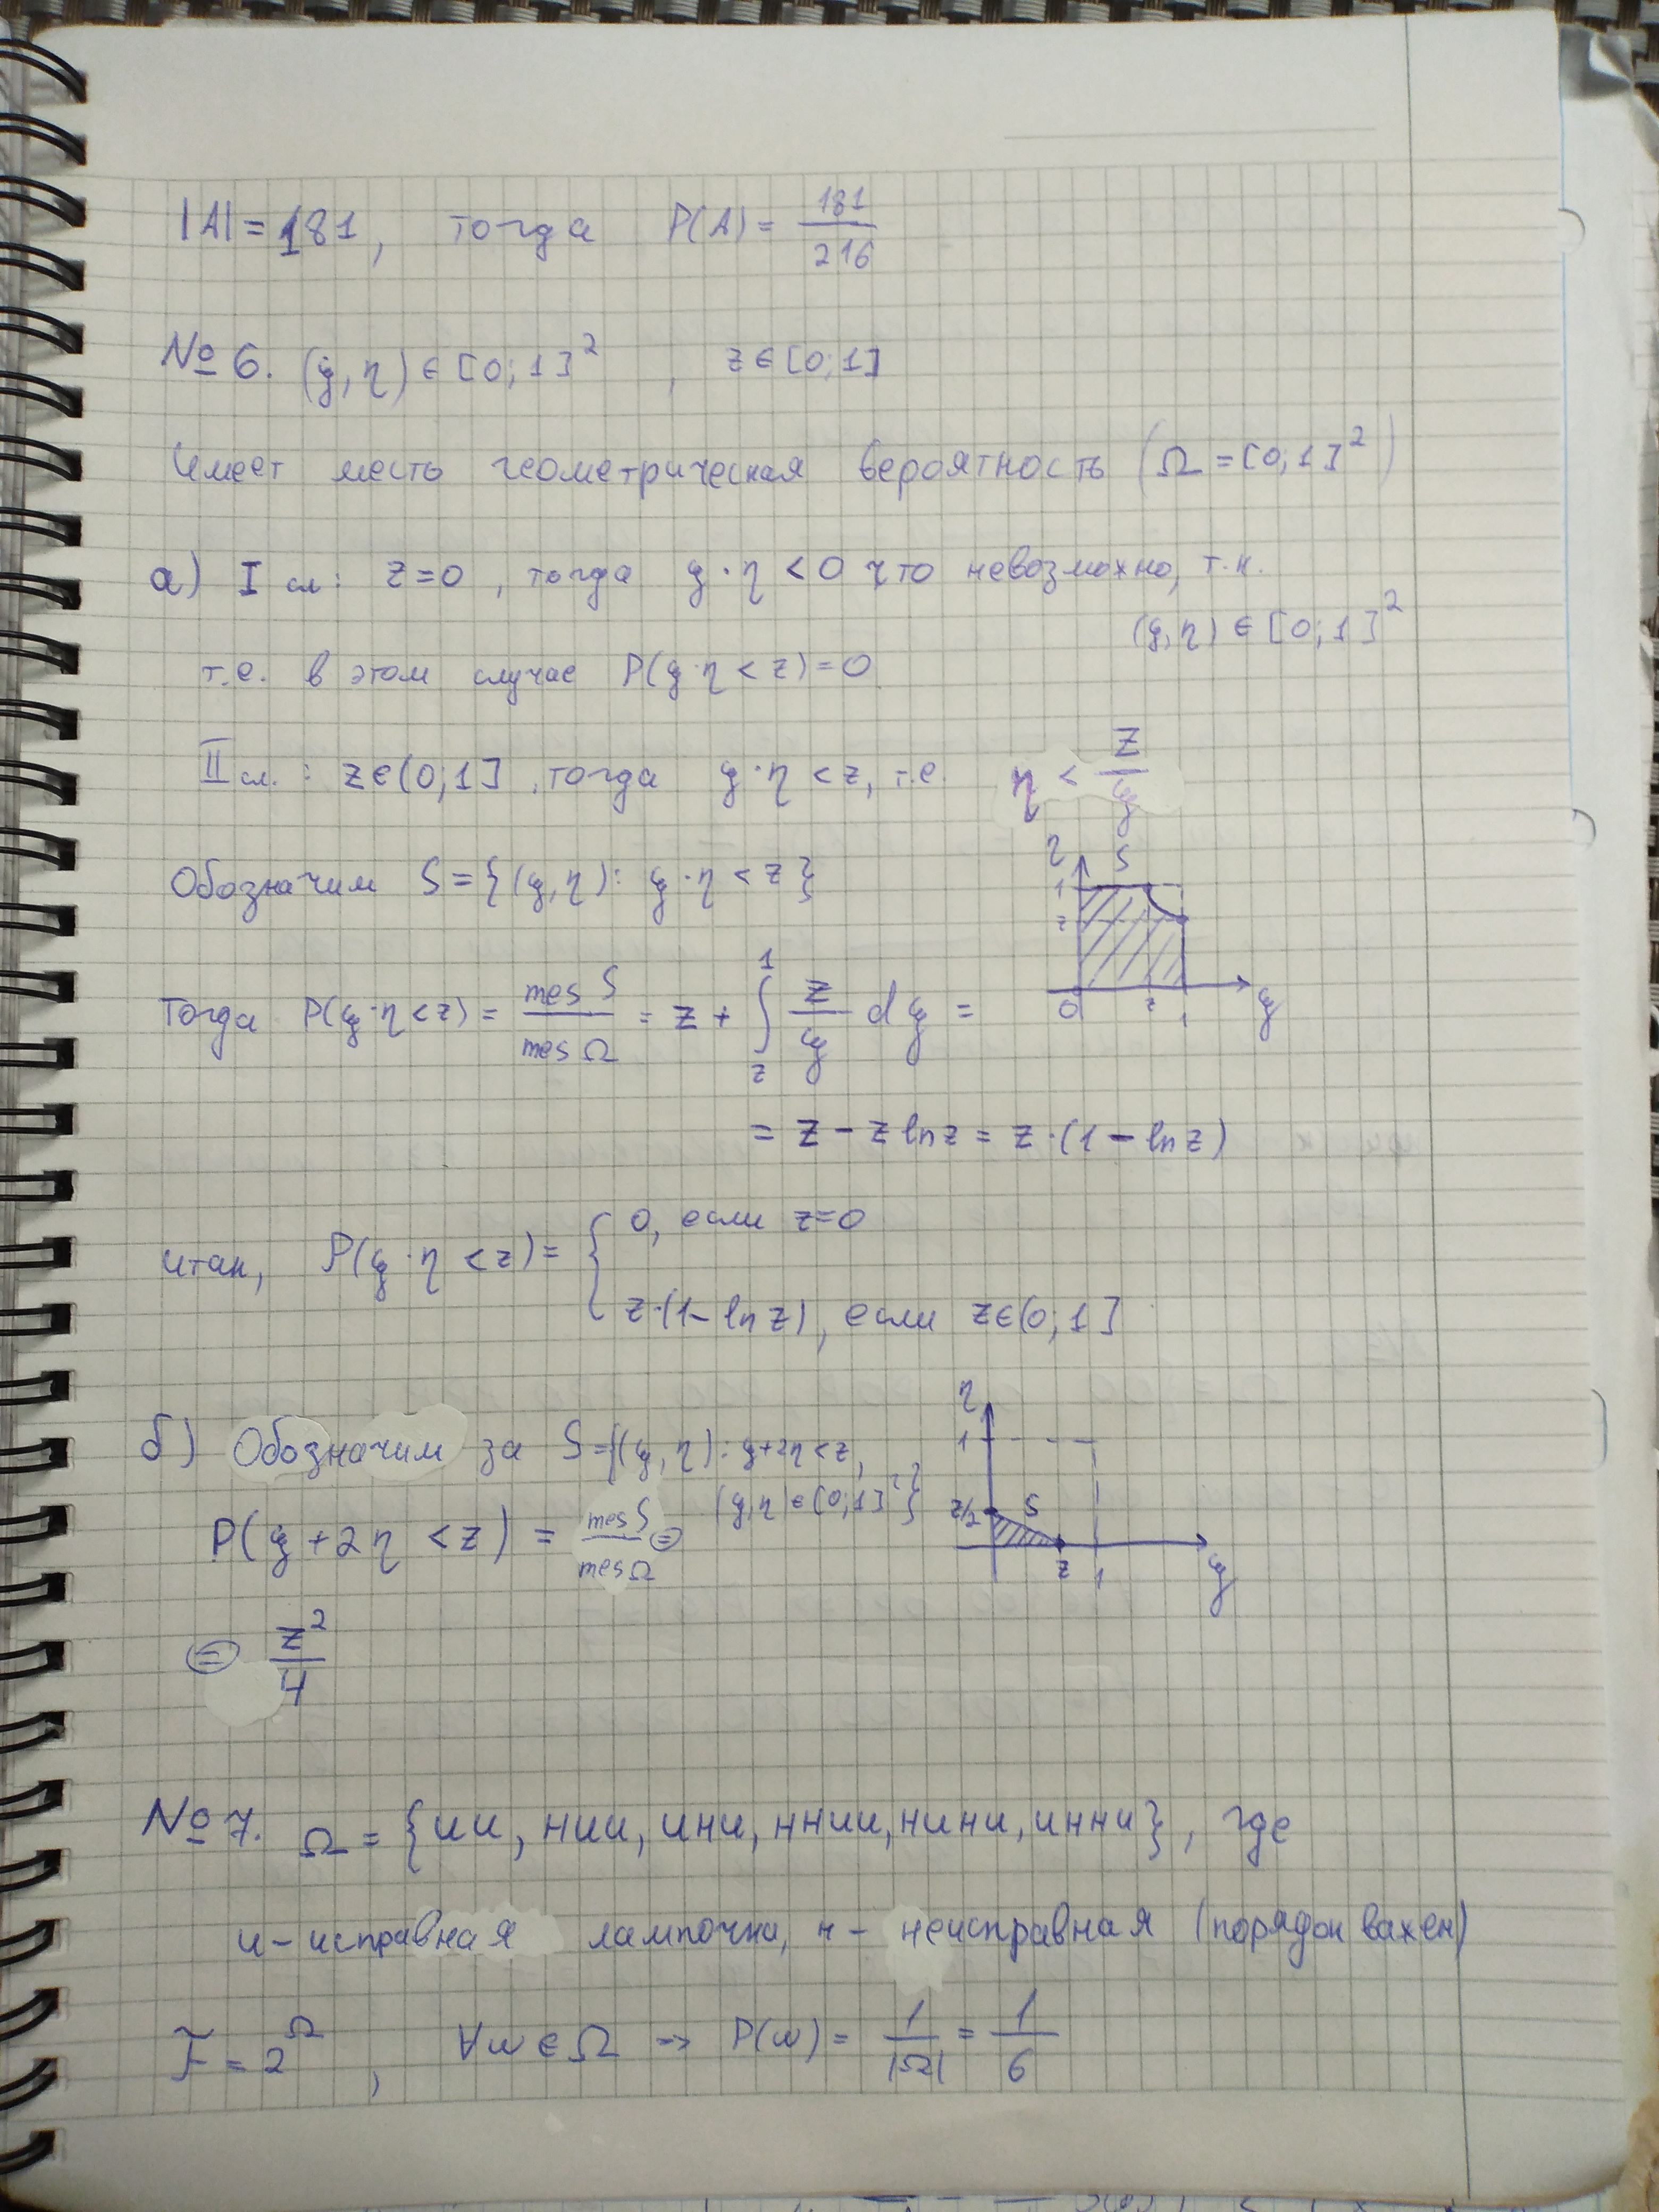 |A| = 181, тогда P(A) = 181/216
№ 6. (ξ, η) ∈ [0; 1]², z ∈ [0; 1]
Имеет месть геометрическая вероятность (Ω = [0; 1]²)
а) I сл: z = 0, тогда ξ · η < 0 что невозможно, т.к.
(ξ, η) ∈ [0; 1]²
т.е. в этом случае P(ξ · η < z) = 0
II сл.: z ∈ (0; 1], тогда ξ · η < z, т.е. η < z/ξ
Обозначим S = {(ξ, η): ξ · η < z}
η S 1 z 0 z 1 ξ
Тогда P(ξ · η < z) = mes S / mes Ω = z + ∫_z^1 z/ξ dξ =
= z - z ln z = z · (1 - ln z)
итак, P(ξ · η < z) = { 0, если z = 0
z · (1 - ln z), если z ∈ (0; 1]
б) Обозначим за S = {(ξ, η): ξ + 2η < z,
(ξ, η) ∈ [0; 1]²}
η 1 z/2 S z 1 ξ
P(ξ + 2η < z) = mes S / mes Ω =
= z²/4
№ 7. Ω = {ии, нии, ини, ннии, нини, инни}, где
и - исправная лампочка, н - неисправная (порядок важен)
F = 2^Ω, ∀w ∈ Ω → P(w) = 1/|Ω| = 1/6